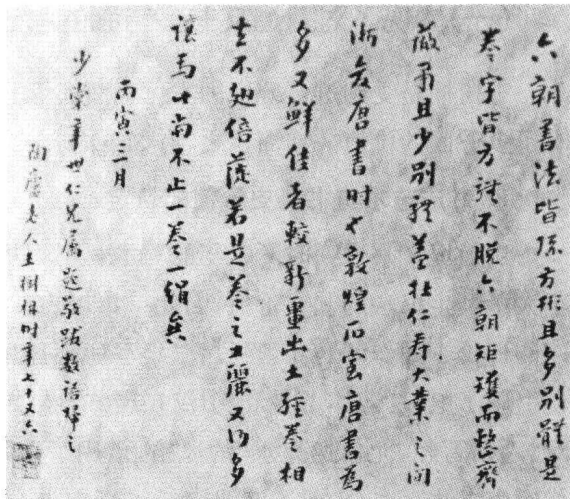 六朝書法皆係方形且多別體是
卷字皆方體不脫六朝矩矱而整齊
嚴肅且少別體蓋在仁壽大業之間
漸變唐書時也敦煌石室唐書為
多又鮮佳者較新疆出土經卷相
去不翅倍蓰若是卷之工麗又何多
讓焉尚不止一卷一絹矣
丙寅三月
少棠年世仁兄屬題敬跋數語歸之
陶廬老人王樹枏時年七十又六